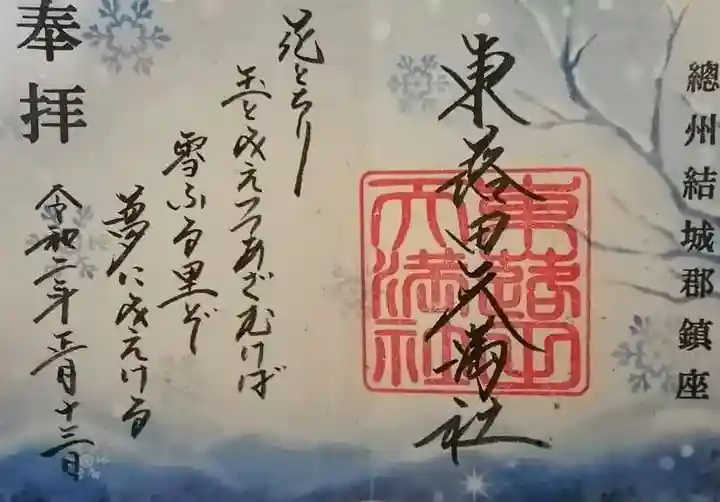 總州結城郡鎮座
東蕗田天満社
東蕗田天満社
花とちり
玉と見えつつあざむけば
雪ふる里ぞ
夢に見えける
令和二年正月十三日
奉拝